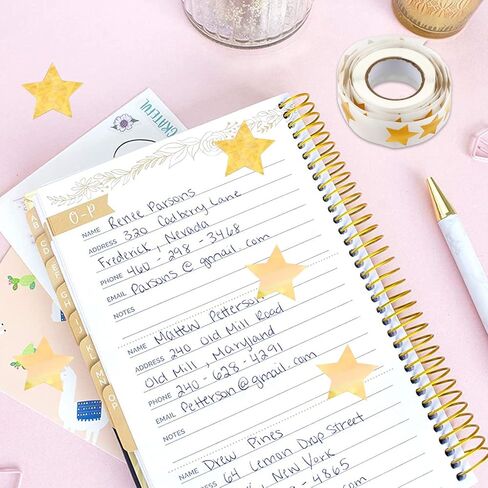 GRATEFUL
O-P
NAME Renee Parsons
ADDRESS 320 Cadberry Lane
Frederick, Nevada
PHONE 460-298-3468
EMAIL Parsons@gmail.com
NOTES
NAME Mattew Petterson
ADDRESS 240 Old Mill Road
Old Mill, Maryland
PHONE 240-628-4291
EMAIL Petterson@gmail.com
NOTES
NAME Drew Pines
ADDRESS 64 Lemon Drop Street
New York
4865
GH
MN
OP